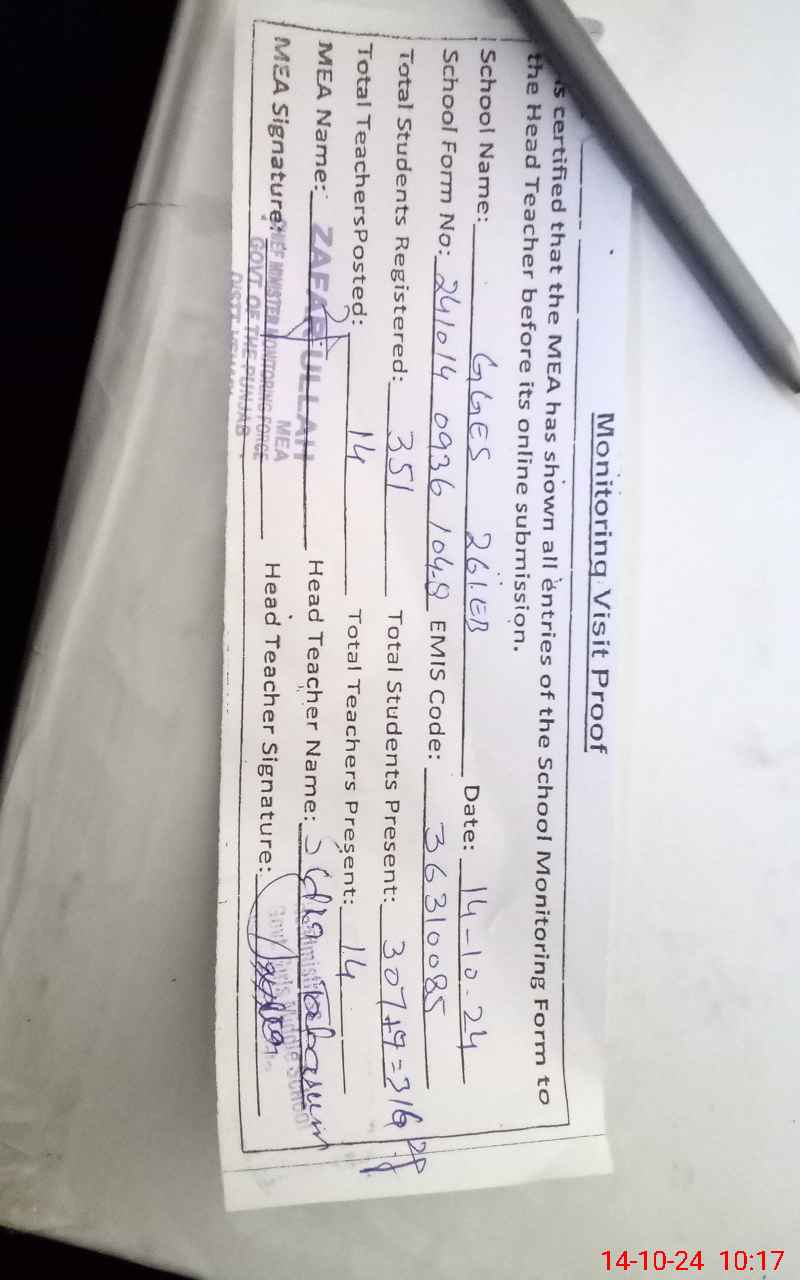 Monitoring Visit Proof
is certified that the MEA has shown all entries of the School Monitoring Form to
the Head Teacher before its online submission.
School Name: GGES 261.EB Date: 14-10-24
School Form No: 241014 0936 1048 EMIS Code: 36310085
Total Students Registered: 351 Total Students Present: 307+9=316
Total TeachersPosted: 14 Total Teachers Present: 14
MEA Name: ZAFAR ULLAH Head Teacher Name:
MEA
MEA Signature: Head Teacher Signature:
CHIEF MINISTER MONITORING FORCE
GOVT. OF THE PUNJAB
DISTT.
Govt Girls Middle School
14-10-24 10:17